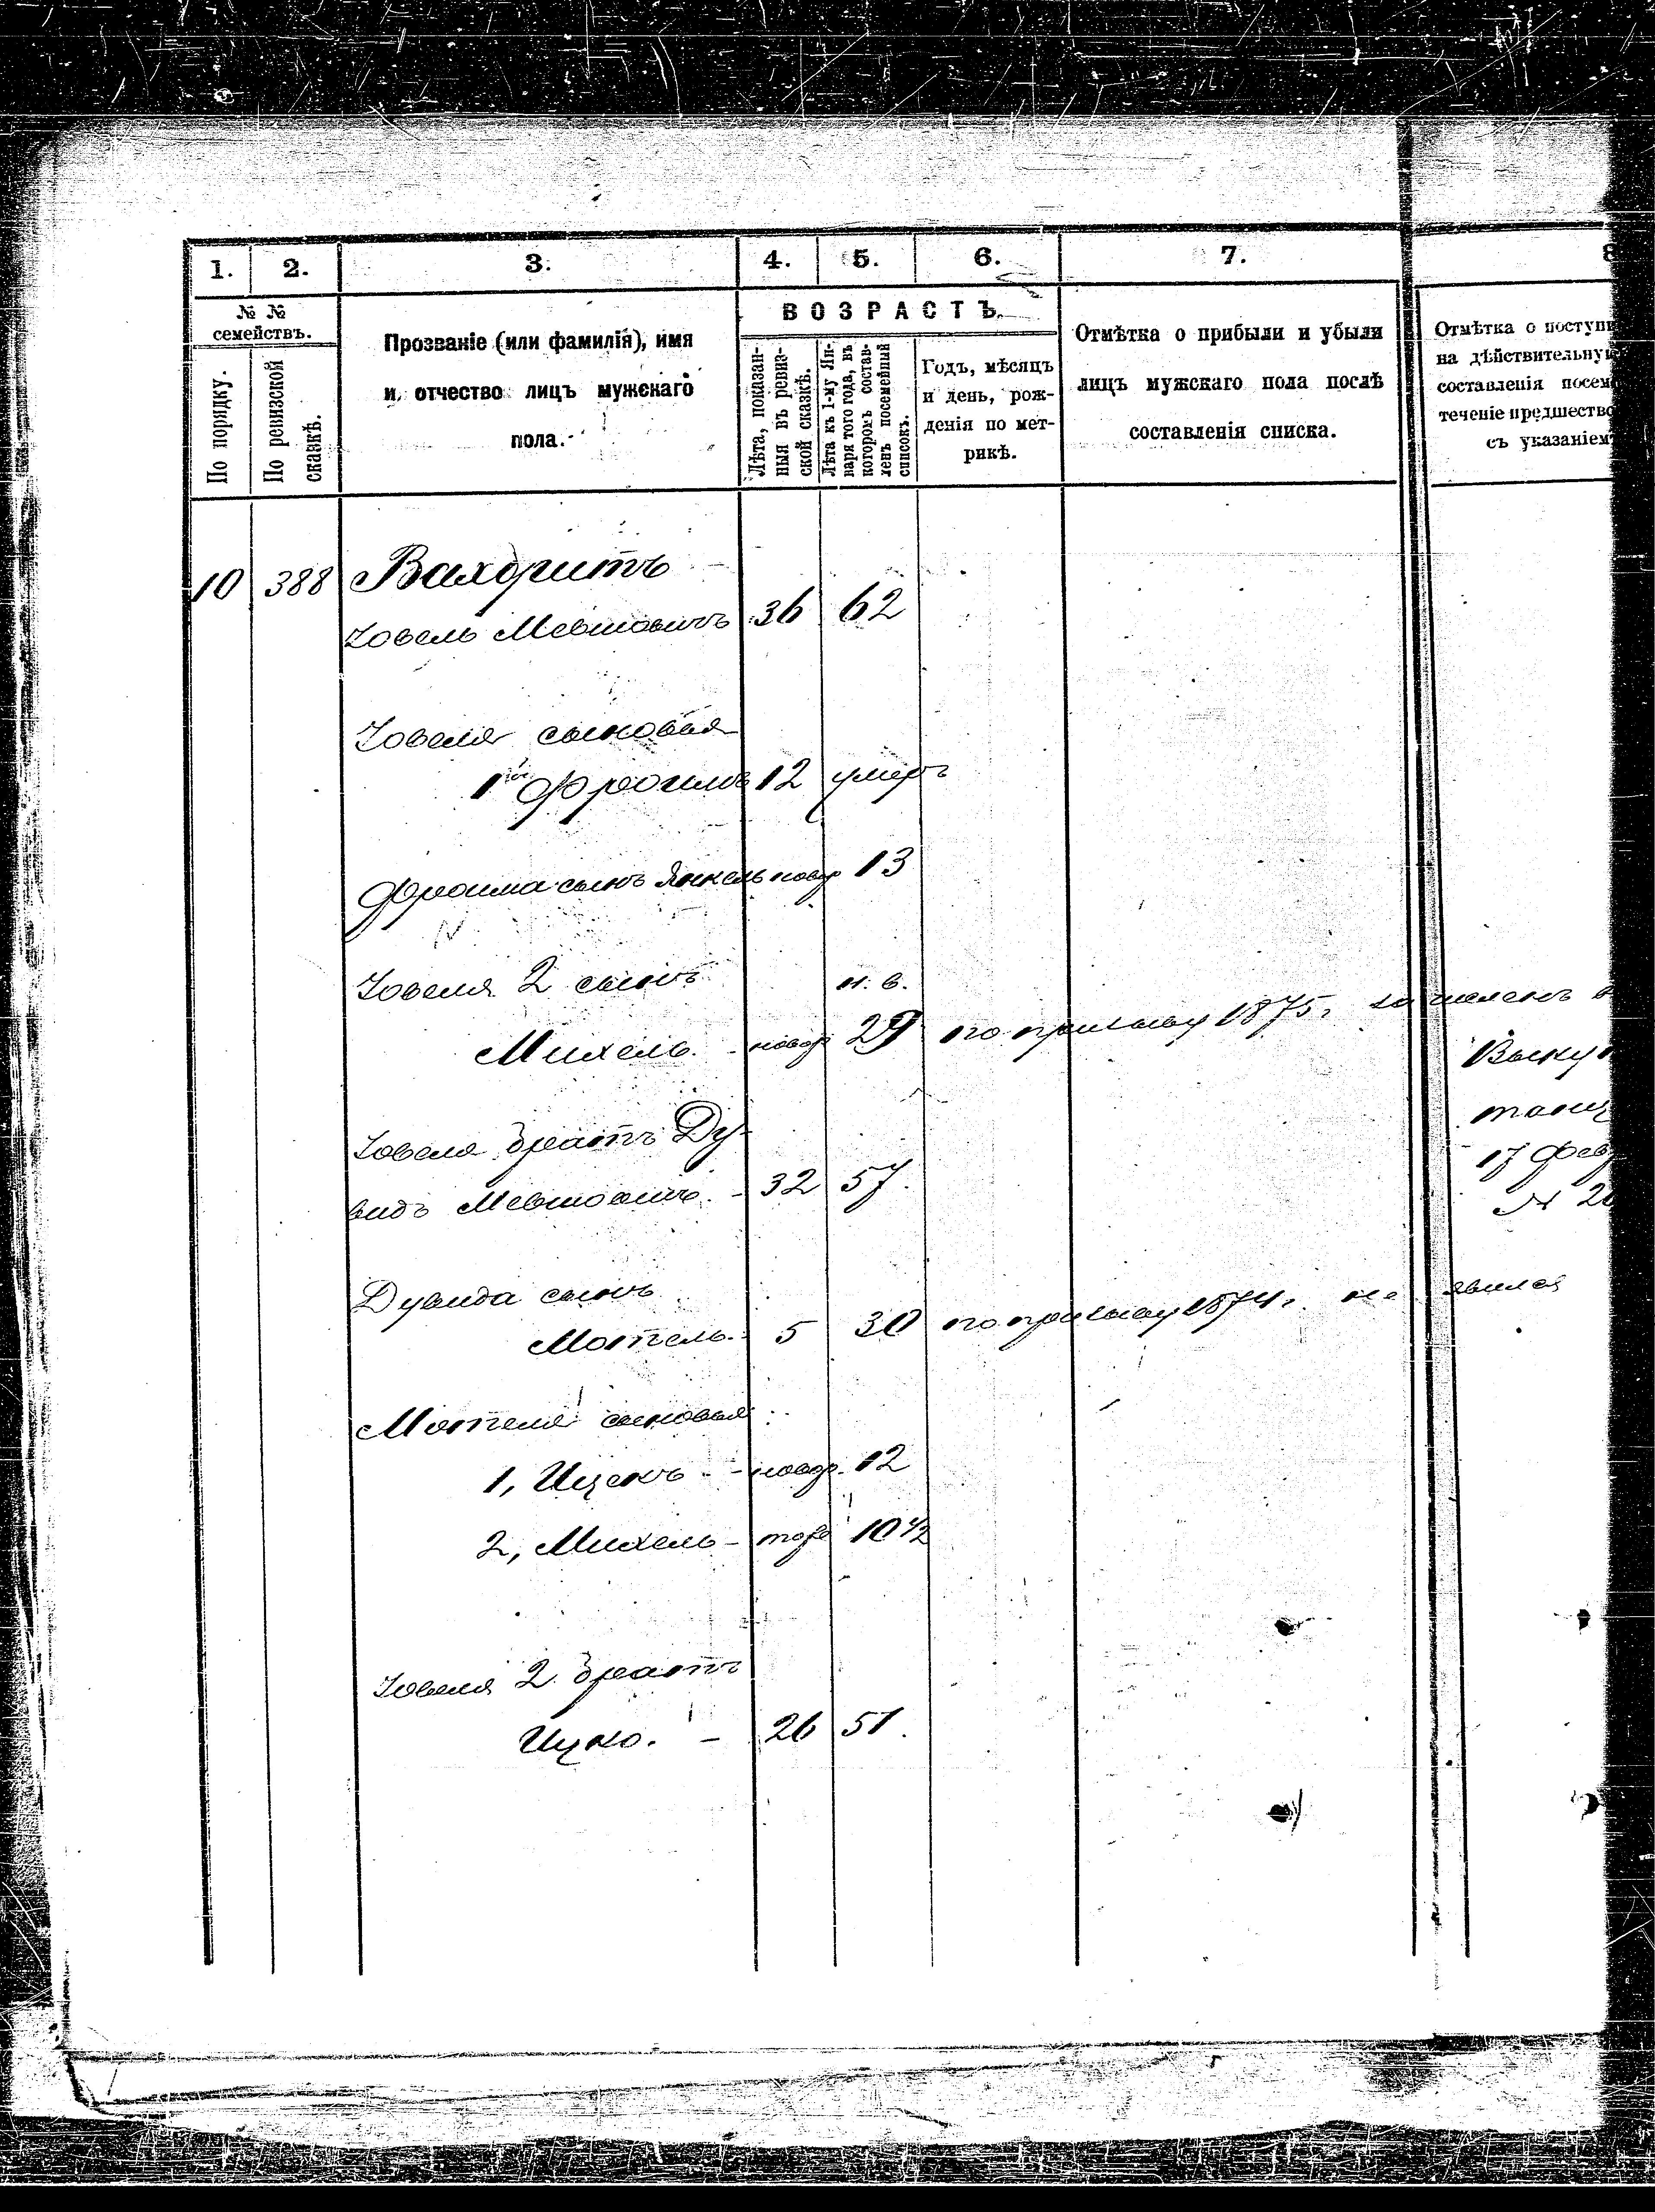 1. 2. 3. 4. 5. 6. 7. 8
№ №
семействъ.
По порядку.
По ревизской
сказкѣ.
Прозваніе (или фамилія), имя
и отчество лицъ мужскаго
пола.
ВОЗРАСТЪ.
Лѣта, показан-
ныя въ ревиз-
ской сказкѣ.
Лѣта къ 1-му Ян-
варя того года, въ
которомъ состав-
ленъ посемейный
списокъ.
Годъ, мѣсяцъ
и день, рож-
денія по мет-
рикѣ.
Отмѣтка о прибыли и убыли
лицъ мужскаго пола послѣ
составленія списка.
Отмѣтка о поступ
на дѣйствительну
составленія посем
теченіе предшество
съ указаніем
10 388 Вахдритъ
Іовель Мевшовичъ 36 62
Іовеля сыновья
1й Фроимъ 12 умеръ
Фроима сынъ Янкель новор 13
Іовеля 2 сынъ н. в.
Михель. - новор 29 по призыву 1875 г. зачисленъ в
Выку
17 Фев
№ 2
Іовеля братъ Ду-
видъ Мевшовичъ. - 32 57.
Дувида сынъ
Мотель. 5 30 по призыву 1874 г. не явился
Мотеля сыновья:
1, Ицекъ - новор. 12
2, Михель - тоже 10 1/2
Іовеля 2 братъ
Ицко. - 26 51.